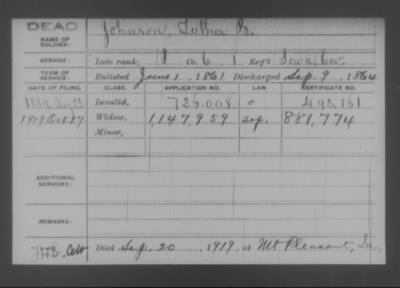 DEAD
NAME OF SOLDIER: Johnson, Luther B.
SERVICE: Late rank, Co. 1 Reg't Iowa Cav.
TERM OF SERVICE: Enlisted June 1, 1861 Discharged Sep. 9, 1864
DATE OF FILING. CLASS. APPLICATION NO. LAW. CERTIFICATE NO.
Invalid, 726.008 495.161
1919 Oct 27 Widow, 1,147,959 881,774
Minor,
ADDITIONAL SERVICES:
REMARKS:
Died Sep. 20, 1919, at Mt Pleasant, Ia.